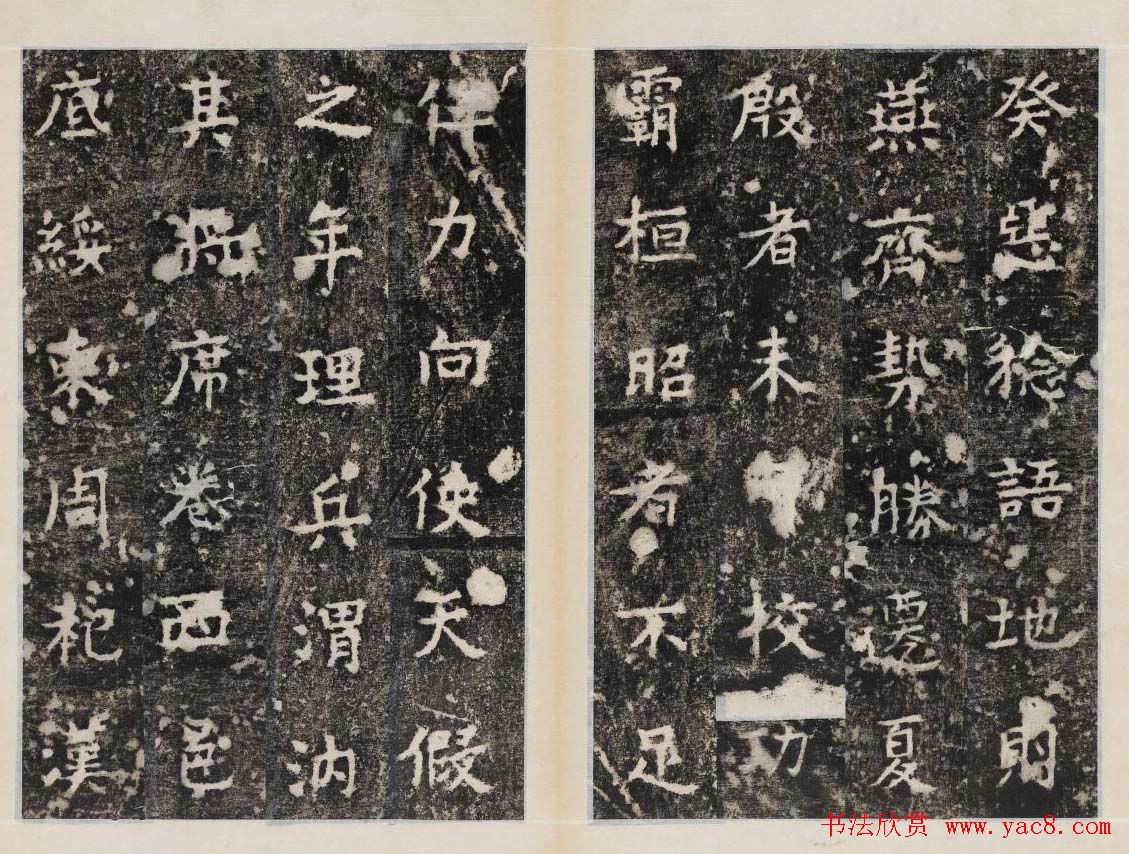 癸惡稔語地則
燕齊勢勝遷夏
殷者未校功
霸桓昭者不足
侔力向使天假
之年理兵渭汭
其將席卷西邑
底綏東周祀漢
书法欣赏 www.yac8.com